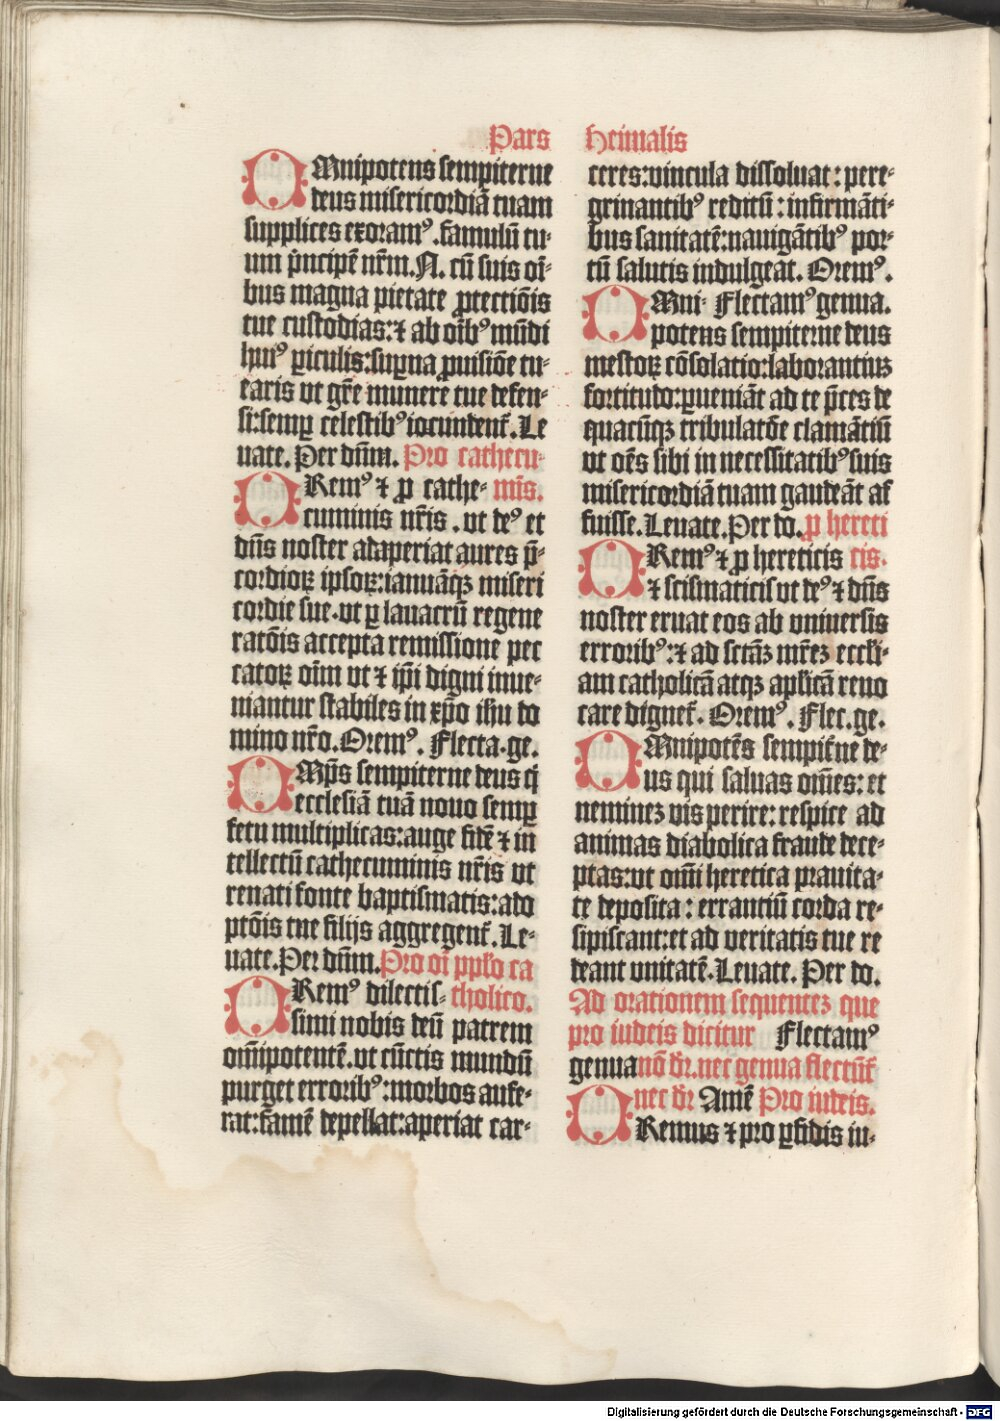 Pars Heimalis
OMnipotens sempiterne
deus misericordiā tuam
supplices exoramꝰ. famulū tu-
um pͥncipē nr̄m. N. cū suis oī-
bus magna pietate ꝓtectiōis
tue custodias: ⁊ ab oībꝰ mūdi
huiꝰ ꝑiculis: suꝑna ꝓuisiōe tu-
earis vt gr̄e munere tue defen-
si: semꝑ celestibꝰ iocundent᷑. Le
uate. Per dn̄m. Pro cathecu-
ORemꝰ ⁊ ꝓ cathe- mīs.
cuminis nr̄is . vt deꝰ et
dn̄s noster adaperiat aures p̄-
cordioꝝ ipsoꝝ: ianuāqꝫ miseri
cordie sue. vt ꝑ lauacrū regene
ratōis accepta remissione pec
catoꝝ oīm vt ⁊ ip̄i digni inue-
niantur stabiles in xp̄o ih̄u do
mino nr̄o. Oremꝰ. Flecta. ge.
OMp̄s sempiterne deus q̄
ecclesiā tuā nouo semꝑ
fetu multiplicas: auge fidē ⁊ in
tellectū cathecuminis nr̄is vt
renati fonte baptismatis: ado
ptōis tue filijs aggregent᷑. Le-
uate. Per dn̄m. Pro oī pplo ca
ORemꝰ dilectis- tholico.
simi nobis deū patrem
om̄ipotentē. vt cūctis mundū
purget erroribꝰ: morbos aufe-
rat: famē depellat: aperiat car-
ceres: vincula dissoluat: pere-
grinantibꝰ reditū: infirmāti-
bus sanitatē: nauigātibꝰ por-
tū salutis indulgeat. Oremꝰ.
OMni- Flectamꝰ genua.
potens sempiterne deus
mestoꝝ cōsolatio: laborantiuꝫ
fortitudo: ꝑueniāt ad te p̄ces de
quacūqꝫ tribulatōe clamātiū
vt oēs sibi in necessitatibꝰ suis
misericordiā tuam gaudeāt af
fuisse. Leuate. Per do. ꝓ hereti
ORemꝰ ⁊ ꝓ hereticis cis.
⁊ scismaticis vt deꝰ ⁊ dn̄s
noster eruat eos ab vniuersis
erroribꝰ: ⁊ ad sctāꝫ mr̄eꝫ eccl̄i-
am catholicā atqꝫ apl̄icā reuo
care dignet᷑. Oremꝰ. Flec. ge.
OMnipotēs sempit̄ne de-
us qui saluas om̄es: et
neminez vis perire: respice ad
animas diabolica fraude dece-
ptas: vt om̄i heretica prauita-
te deposita: errantiū corda re-
sipiscant: et ad veritatis tue re
deant vnitatē. Leuate. Per do.
Ad orationem sequentez que
pro iudeis dicitur Flectamꝰ
genua nō dr̄. nec genua flectūt᷑
nec dr̄ Amē Pro iudeis.
ORemus ⁊ pro ꝑfidis iu-
Digitalisierung gefördert durch die Deutsche Forschungsgemeinschaft - DFG